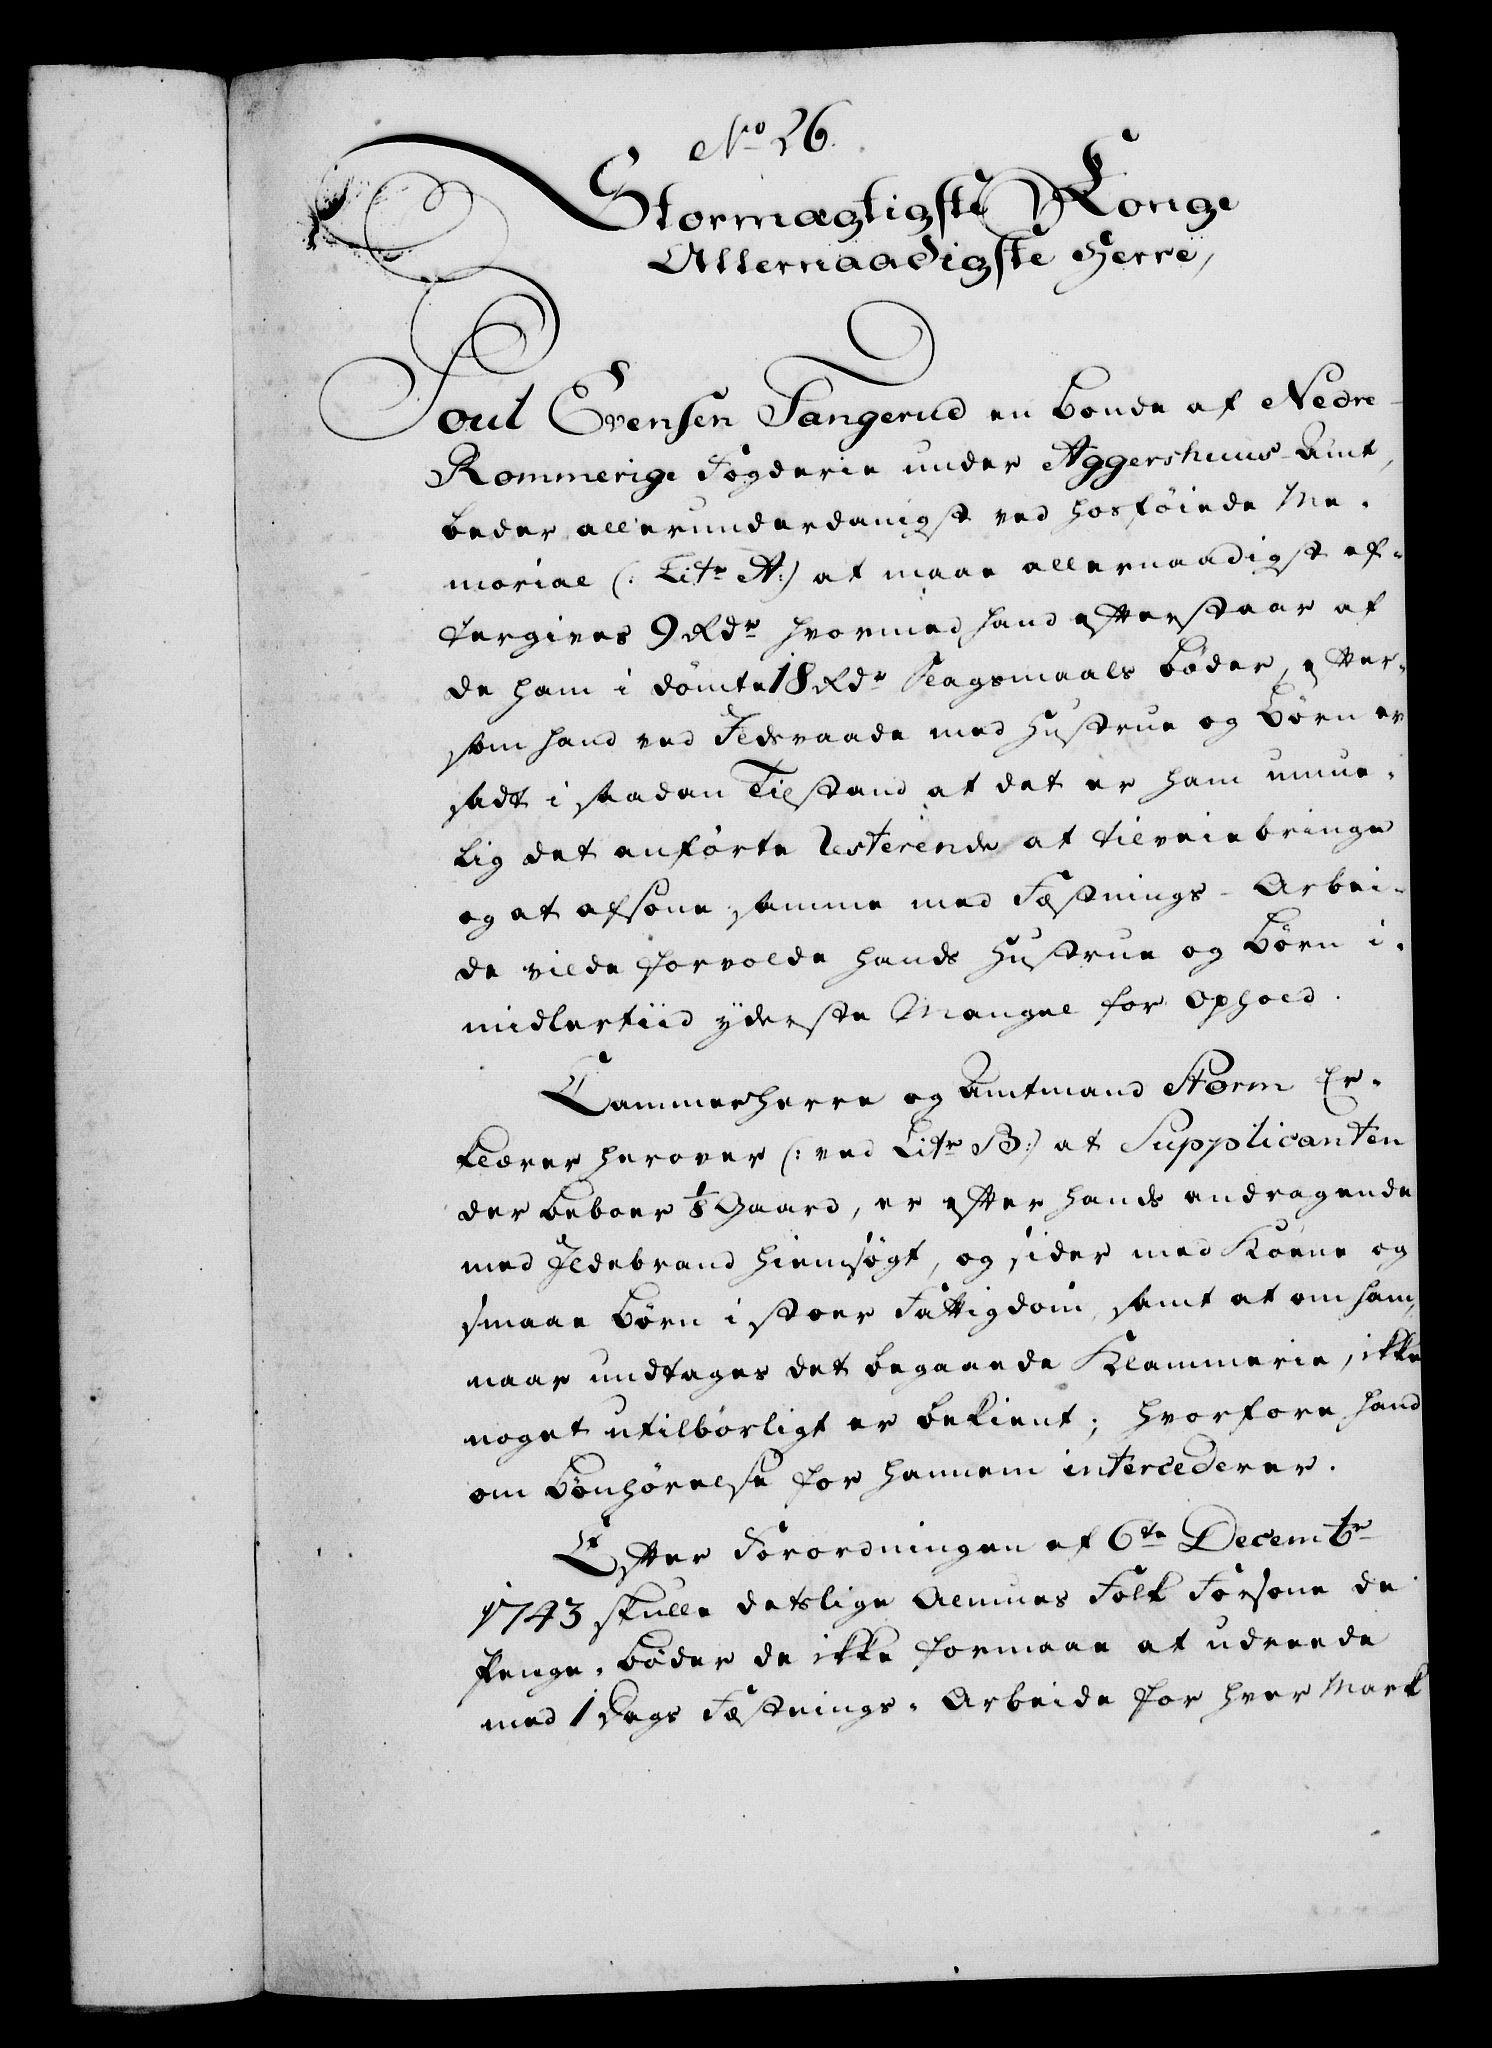 No 26.
Stormægtigste Konge
Allernaadigste Herre,
Poul Evensen Tangerud en bonde af Nedre-
Rommerige Fogderie under Aggershuus-Amt,
beder allerunderdanigst ved hosföiede Me-
morial (: Litr A:) at maae allernaadigst ef-
tergives 9 Rdr hvormed hand efterstaar af
de ham i dömte 18 Rdr Slagsmaals böder, efter-
som hand ved Ildsvaade med Hustrue og Börn er
sadt i saadan Tilstand at det er ham umue-
lig det anförte Resterende at tilveiebringe
og at afsone samme med Fæstnings-Arbei-
de vilde forvolde hands Hustrue og Börn i-
midlertiid ÿderste Mangel for Ophold.
Cammerherre og Amtmand Storm Er-
klærer herover (: ved Litr B:) at Supplicanten
der beboer 1/8 Gaard, er efter hands andragende
med Ildebrand hiemsögt, og sider med Kone og
smaae Börn i stoer Fattigdom, samt at om ham,
naar undtages det begaaende Klammerie, ikke
noget utilbörligt er bekient; hvorfore hand
om Bönhörelse for hannem intercederer.
Efter Forordningen af 6te Decembr
1743 skulle detslige Almues Folk Forsone de
Penge-böder de ikke formaae at udreede
med 1 Dags Fæstnings-Arbeide for hver Mark